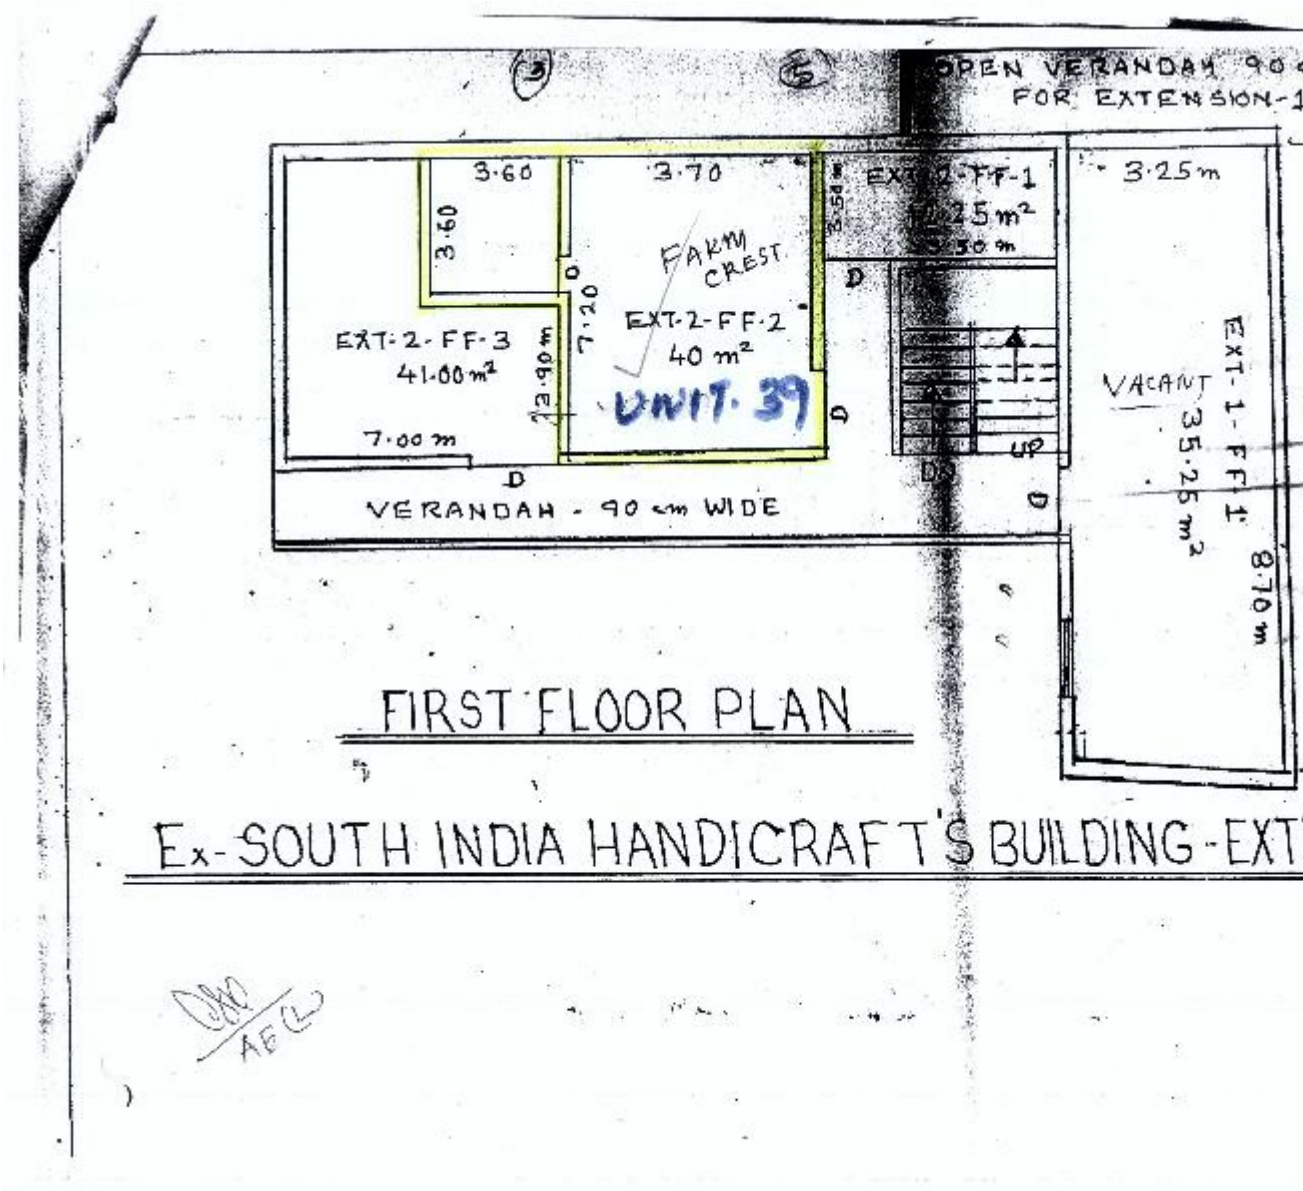 3
5
OPEN VERANDAH 90
FOR EXTENSION-1
3.60
3.70
3.60
3.50m
EXT-2-FF-1
25 m²
3.50 m
3.25m
FARM
CREST
D
D
7.20
EXT-2-FF-3
41.00m²
3.90m
EXT-2-FF-2
40 m²
UNIT. 39
D
VACANT
EXT-1-FF1
35.25 m²
8.70 m
7.00 m
D
UP
D
VERANDAH - 90 cm WIDE
FIRST FLOOR PLAN
Ex-SOUTH INDIA HANDICRAFT'S BUILDING-EXT
AE(L)